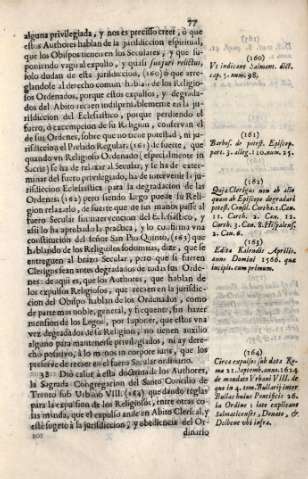 77
alguna privilegiada, y nos es preciso creer, ò que
estos Authores hablan de la jurisdiccion espiritual,
que los Obispos tienen en los Seculares, y que su-
poniendo vago al expulso, y quasi fori sui
solo dudan de esta jurisdiccion, (160) ò que arre-
glandose al derecho comun hablan de los Religio-
sos Ordenados, porque estos expulsos, y degrada-
dos del Abito recaen indispensablemente en la ju-
risdiccion del Eclesiastico, porque perdiendo el
fuero, ò excempcion de su Religion, conservan el
de sus Ordenes, sobre que no tiene potestad, ni ju-
risdiccion el Prelado Regular; (161) de suerte, que
quando un Religioso Ordenado (especialmente in
Sacris) se ha de relaxar al Secular, y se ha de exter-
minar del fuero privilegiado, ha de intervenir la ju-
risdiccion Eclesiastica para la degradacion de las
Ordenes; (162) pero siendo lego puede su Reli-
gion relaxarlo, de suerte que de sus manos passe al
fuero Secular sin intervencion del Eclesiastico, y
assi lo ha aprobado la practica, y lo confirma una
constitucion del señor San Pio Quinto, (163) que
hablando de los Religiosos sodomitas, dize, que se
entreguen al brazo Secular, pero que si fueren
Clerigos sean antes degradados de todas sus Orde-
nes: de aqui es, que los Authores, que hablan de
los expulsos Religiosos, que recaen en la jurisdic-
cion del Obispo hablan de los Ordenados, como
de parte mas noble, general, y frequente, sin hazer
mencion de los Legos, por suponer, que estos una
vez degradados de la Religion, no tienen auxilio
alguno para mantenerse privilegiados, ni ay dere-
cho positivo, à lo menos in corpore juris, que los
preserve de recaer en el fuero Secular ordinario.
38 Diò causa à esta doctrina de los Authores,
la Sagrada Congregacion del Santo Concilio de
Trento sub Urbano VIII. (164) que dando reglas
para la expulsion de los Religiosos, entre otras co-
sas manda, que el expulso ande en Abito Clerical, y
estè sugeto à la jurisdiccion, y obediencia del Or-
dinario
(160)
Ut indicant Salmant. dict.
cap. 3. num. 98.
(161)
Barbos. de potest. Episcop.
part. 3. alleg. 110. num. 25.
(162)
Quia Clericus non ab alio
quam ab Episcopo degradari
potest. Concil. Carthag. 1. Can.
11. Carth. 2. Can. 12.
Carth. 3. Can. 8. Hispalens.
2. Can. 6.
(163)
Edita Kalendis Aprilis,
anno Domini 1566. que
incipit cum primum.
(164)
Circa expulsos sub data Ro-
mæ 21. Septemb. anno 1624
de mandato Urbani VIII. de
quo in 4. tom. Bullarij inter
Bullas huius Pontificis 26.
in Ordine: late explicant
Salmaticenses, Donato, &
Delbene ubi infra.